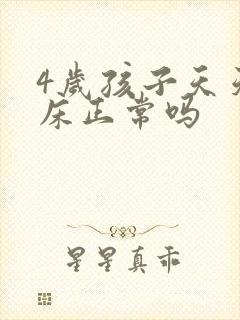 4岁孩子天天
床正常吗
星星真乖